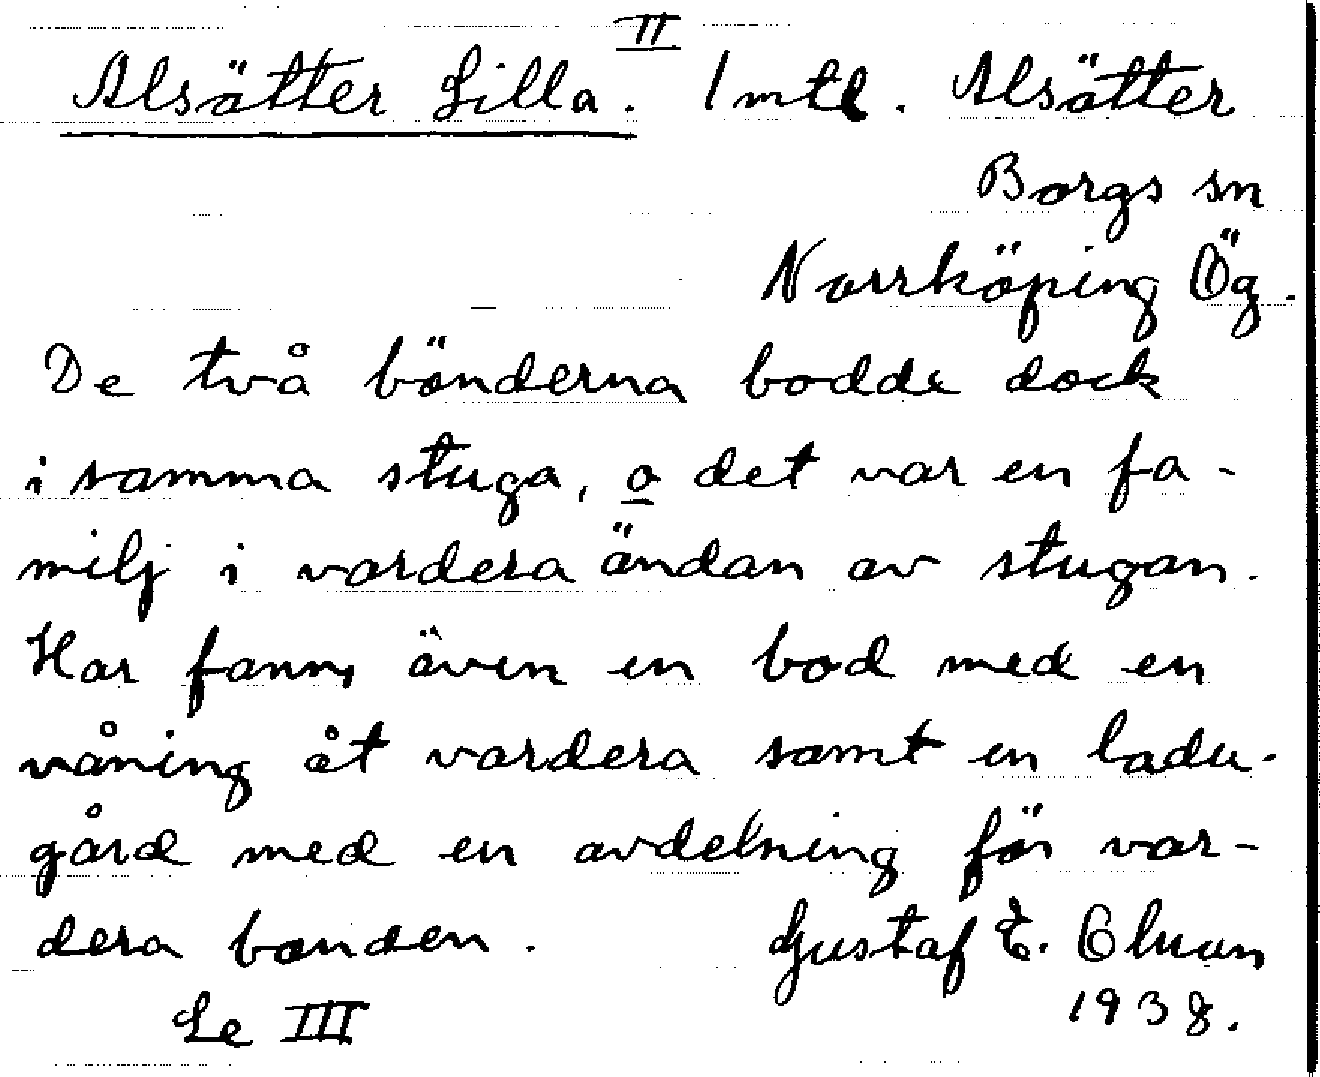 II
Alsätter Lilla. Imtl. Alsätter
Borgs sn
Norrköping Ög.
De två bönderna bodde dock
i samma stuga, o det var en fa-
milj i vardera ändan av stugan.
Har fanns även en bod med en
våning åt vardera samt en ladu-
gård med en avdelning för var-
dera bonden. Gustaf E.
Se III 1938.